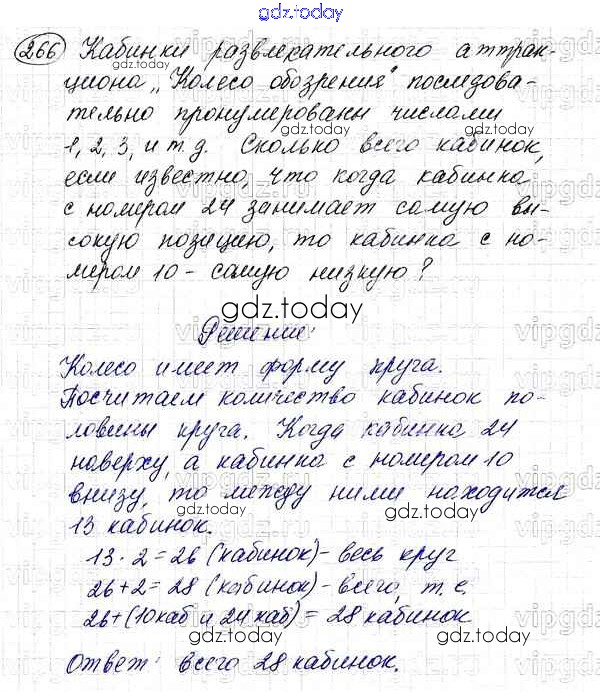 gdz.today
266 Кабинки развлекательного аттрак-
циона „Колесо обозрения" последова-
тельно пронумерованы числами
gdz.today
1, 2, 3, и т.д. Сколько всего кабинок,
если известно, что когда кабинка
с номером 24 занимает самую вы-
сокую позицию, то кабинка с но-
мером 10 - самую низкую?
gdz.today
Решение:
Колесо имеет форму круга.
Посчитаем количество кабинок по-
ловины круга. Когда кабинка 24
наверху, а кабинка с номером 10
внизу, то между ними находится
13 кабинок.
gdz.today
13 · 2 = 26 (кабинок) - весь круг
26 + 2 = 28 (кабинок) - всего, т.е.
26 + (10 каб и 24 каб) = 28 кабинок
gdz.today
Ответ: всего 28 кабинок.